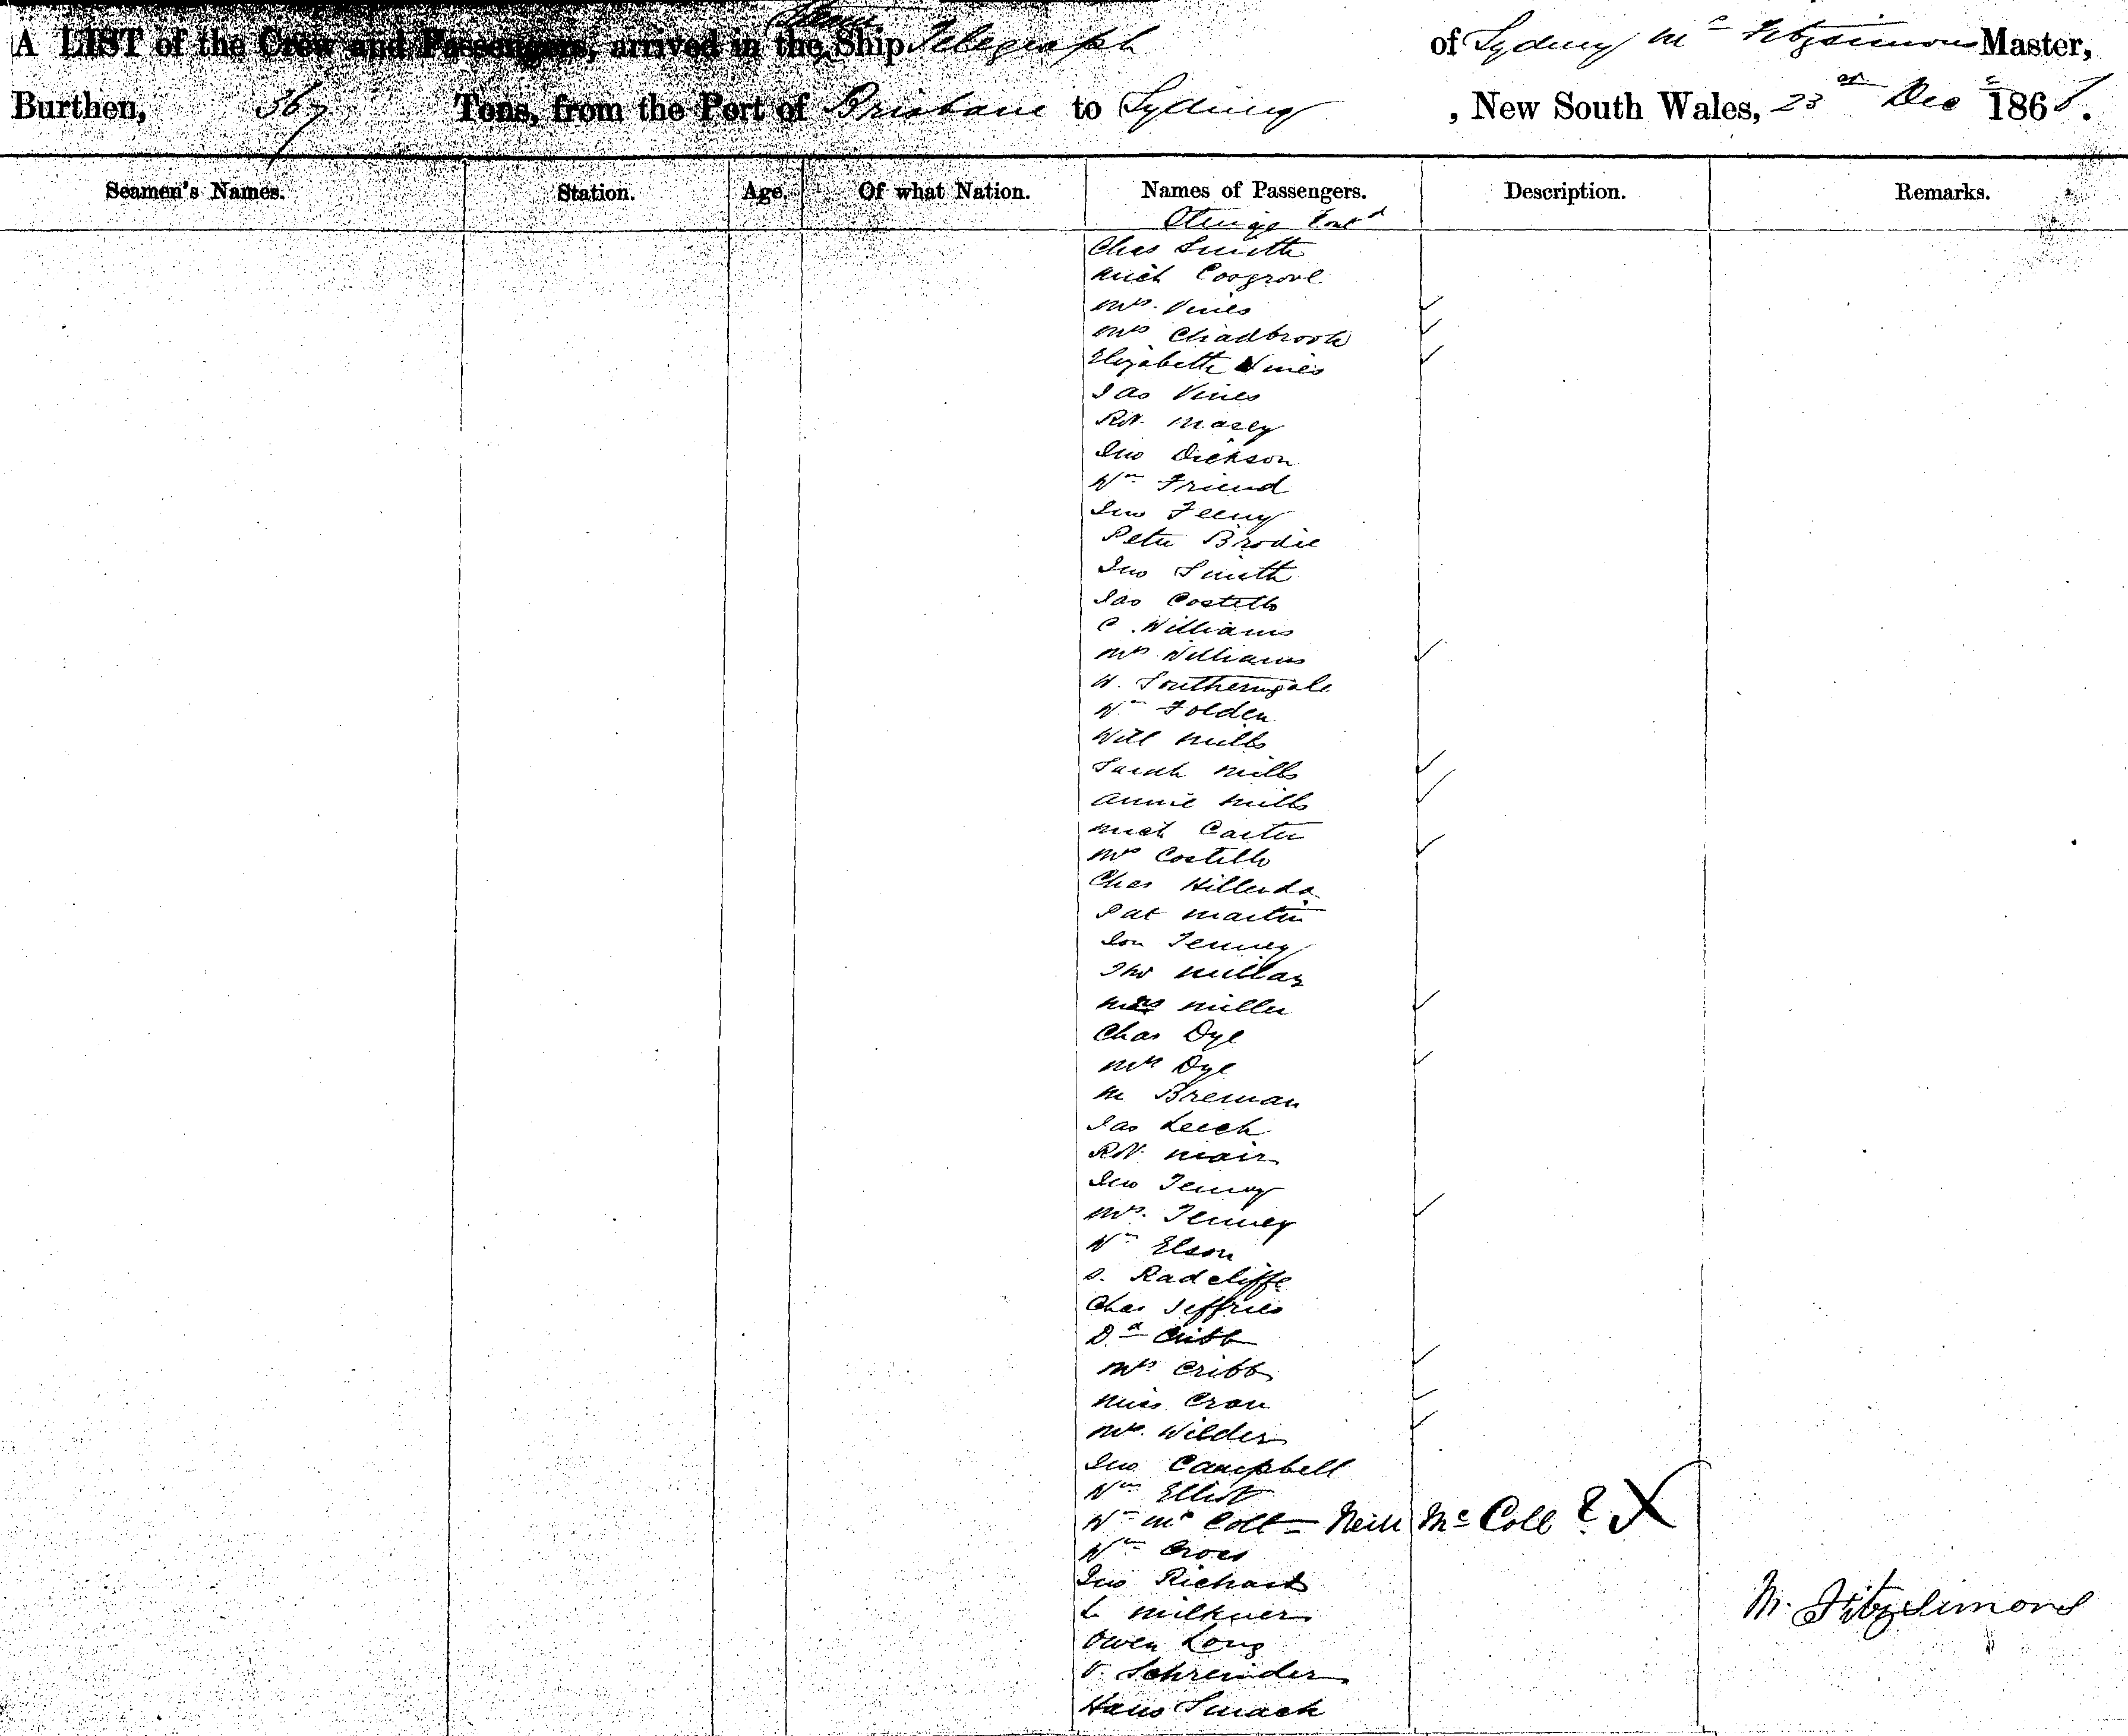 A LIST of the Crew and Passengers, arrived in the Steam Ship Telegraph of Sydney Mr Fitzsimons Master,
Burthen, 367 Tons, from the Port of Brisbane to Sydney, New South Wales, 23rd Dec 1868.
Seamen's Names. Station. Age. Of what Nation. Names of Passengers. Description. Remarks.
Steerage Contd
Chas Smith
Mich Cosgrove
Mrs. Vines
Mrs Chadbrook
Elizabeth Vines
Jas Vines
Rt. Masey
Jno Dickson
Wm Friend
Jno Feeny
Peter Brodie
Jno Smith
Jas Costello
C. Williams
Mrs Williams
W. Southerngale
Wm Folden
Will Mills
Sarah Mills
Annie Mills
Mich Carter
Mrs Costello
Chas
Pat Martin
Jon Tenney
Thos Millar
Mrs Miller
Chas Dye
Mrs Dye
M Brennan
Jas Leech
Rt. Mair
Jno Tenney
Mrs. Tenney
Wm Elson
S. Radcliffe
Chas Jeffries
Dd Cribb
Mrs Cribb
Miss Cran
Mrs. Wilder
Jno Campbell
Wm Elliot
Wm McColl - Neill McColl ? X
Wm Cross
Jno Richards
L. Milkner
Owen Long
V. Schreinder
Hans Smack
M. Fitzsimons